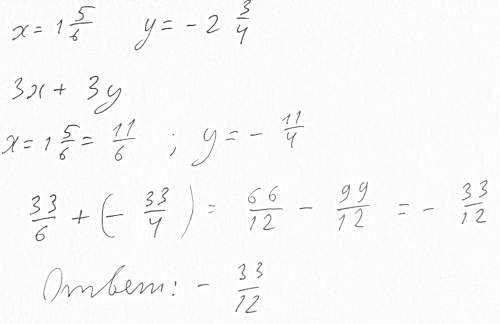 x = 1 5/6   y = - 2 3/4
3x + 3y
x = 1 5/6 = 11/6 ; y = - 11/4
33/6 + (- 33/4) = 66/12 - 99/12 = - 33/12
Ответ: - 33/12